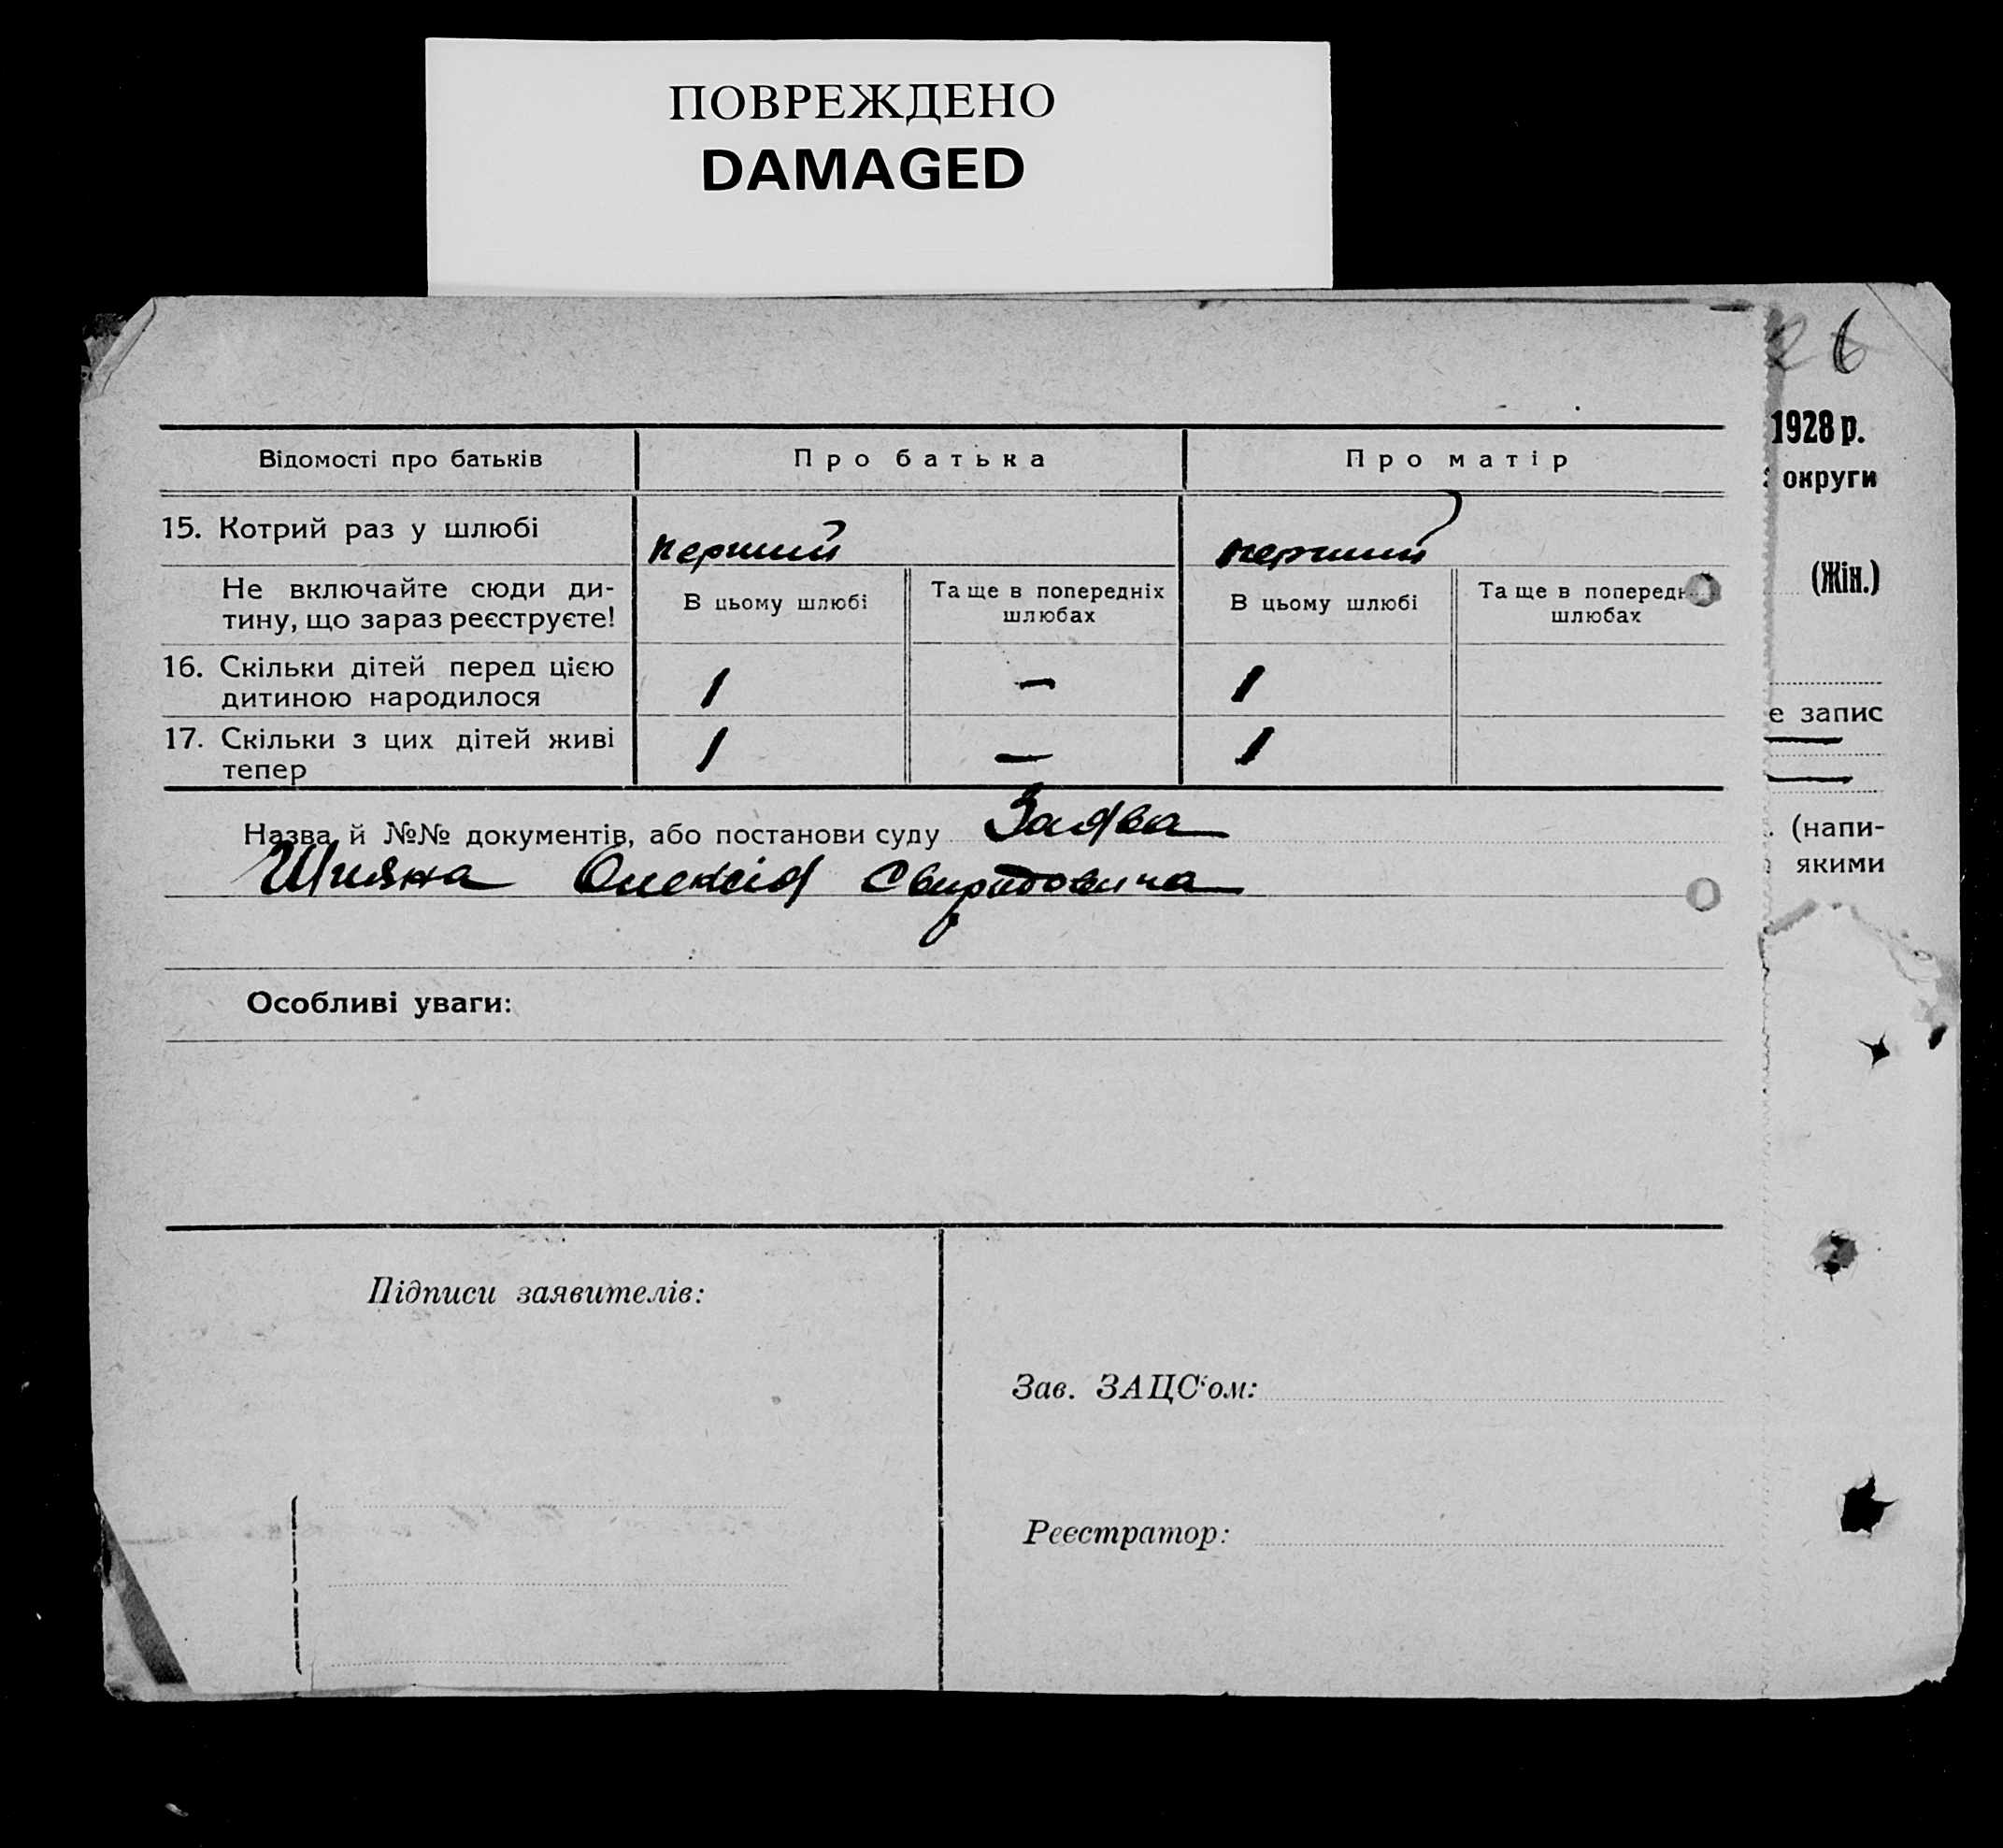 ПОВРЕЖДЕНО
DAMAGED
26
1928 р.
округи
(Жін.)
е запис
(напи-
якими
Відомості про батьків Про батька Про матір
15. Котрий раз у шлюбі перший перший
Не включайте сюди ди-
тину, що зараз реєструєте!
В цьому шлюбі
Та ще в попередніх
шлюбах
В цьому шлюбі
Та ще в поперед
шлюбах
16. Скільки дітей перед цією
дитиною народилося 1 — 1
17. Скільки з цих дітей живі
тепер 1 — 1
Назва й №№ документів, або постанови суду Заява
Олексія Свиридовича
Особливі уваги:
Підписи заявителів:
Зав. ЗАЦС'ом:
Реєстратор: